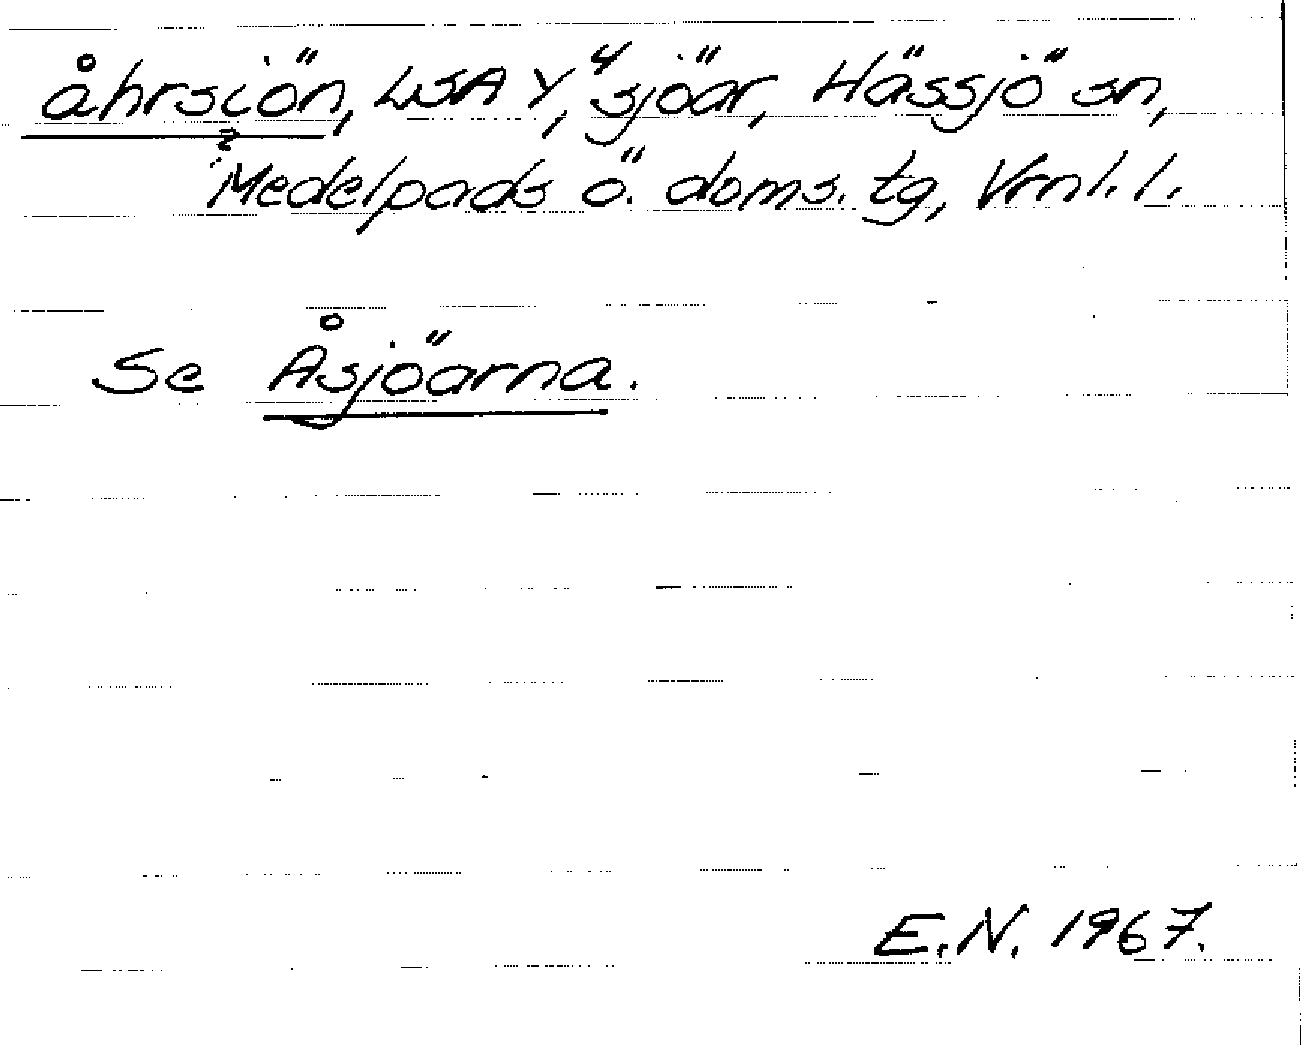 åhrsiön, LSA Y, 4 sjöar, Hässjö sn,
Medelpads ö. doms. tg, Vrnl. l.
Se Åsjöarna.
E.N. 1967.